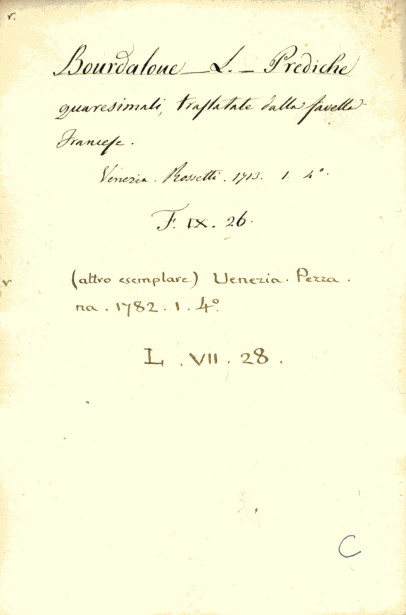 r.
Bourdaloue _ L. _ Prediche
quaresimali, traslatate dalla favella
Francese.
Venezia. Rossetti. 1713. 1 4°
F. IX. 26.
(altro esemplare) Venezia. Pezza
na. 1782. 1. 4°.
L. VII. 28.
C